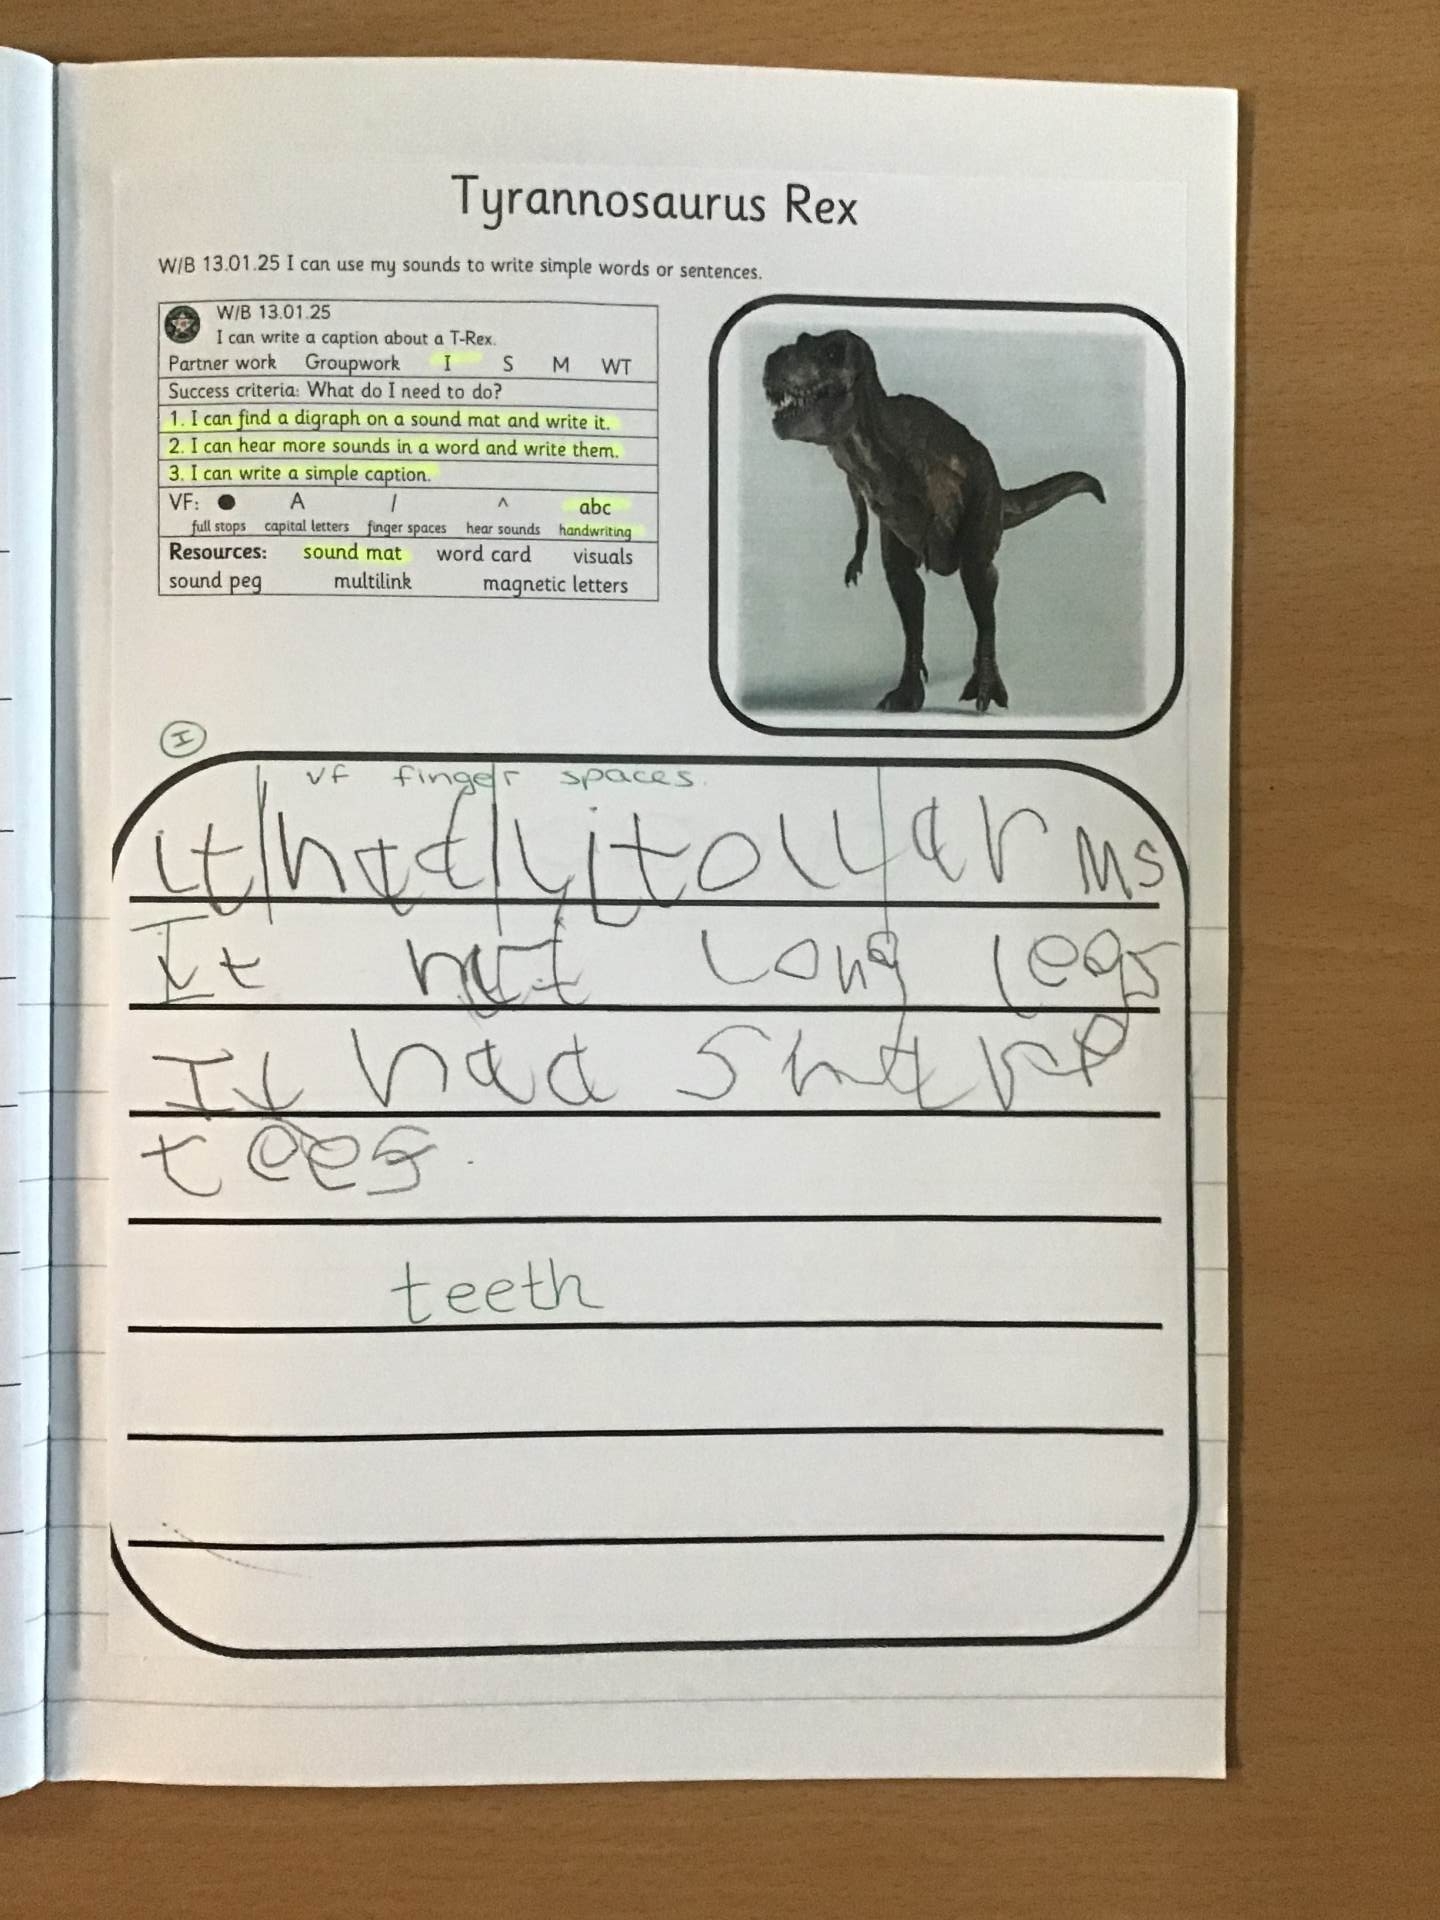 Tyrannosaurus Rex
W/B 13.01.25 I can use my sounds to write simple words or sentences.
W/B 13.01.25
I can write a caption about a T-Rex.
Partner work Groupwork I S M WT
Success criteria: What do I need to do?
1. I can find a digraph on a sound mat and write it.
2. I can hear more sounds in a word and write them.
3. I can write a simple caption.
VF: ● A / ^ abc
full stops capital letters finger spaces hear sounds handwriting
Resources: sound mat word card visuals
sound peg multilink magnetic letters
I
vf finger spaces.
it/had/litoll/arms
It long legs
It had sharp
tees.
teeth